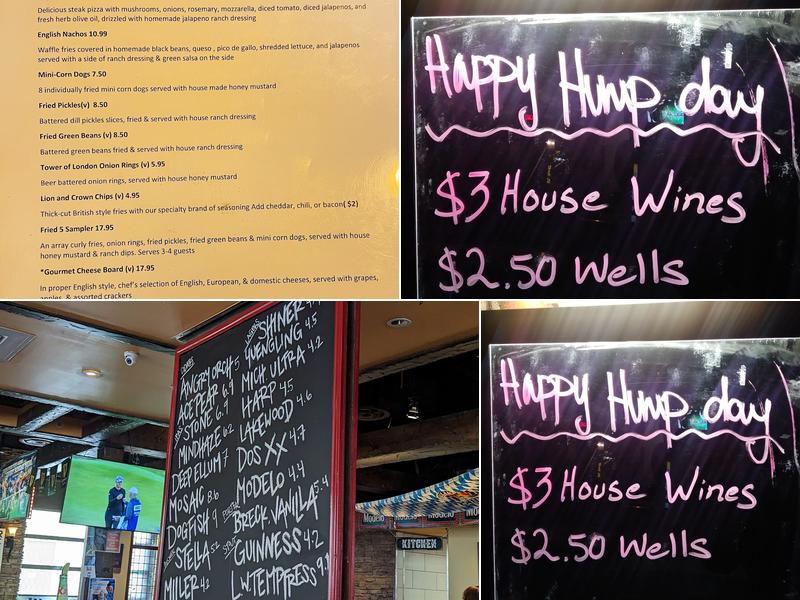 Delicious steak pizza with mushrooms, onions, rosemary, mozzarella, diced tomato, diced jalapenos, and
fresh herb olive oil, drizzled with homemade jalapeno ranch dressing
English Nachos 10.99
Waffle fries covered in homemade black beans, queso , pico de gallo, shredded lettuce, and jalapenos
served with a side of ranch dressing & green salsa on the side
Mini-Corn Dogs 7.50
8 individually fried mini corn dogs served with house made honey mustard
Fried Pickles(v) 8.50
Battered dill pickles slices, fried & served with house ranch dressing
Fried Green Beans (v) 8.50
Battered green beans fried & served with house ranch dressing
Tower of London Onion Rings (v) 5.95
Beer battered onion rings, served with house honey mustard
Lion and Crown Chips (v) 4.95
Thick-cut British style fries with our specialty brand of seasoning Add cheddar, chili, or bacon( $2)
Fried 5 Sampler 17.95
An array curly fries, onion rings, fried pickles, fried green beans & mini corn dogs, served with house
honey mustard & ranch dips. Serves 3-4 guests
*Gourmet Cheese Board (v) 17.95
In proper English style, chef's selection of English, European, & domestic cheeses, served with grapes,
apples, & assorted crackers
Happy Hump day
$3 House Wines
$2.50 Wells
ANGRY ORCH 5
ACE PEAR
STONE 6.9
MINDHAZE 6.2
DEEP ELLUM 7
MOSAIC 8.6
DOGFISH 9
STELLA 5.2
MILLER
SHINER
YUENGUNG 4.5
MICH ULTRA 4.2
HARP 4.5
LAKEWOOD 4.6
DOS XX 4.7
MODELO 4.4
BRECK. VANILLA 5.4
GUINNESS 4.2
LW. TEMPTRESS 9.1
Modelo
KITCHEN
Happy Hump day
$3 House Wines
$2.50 Wells